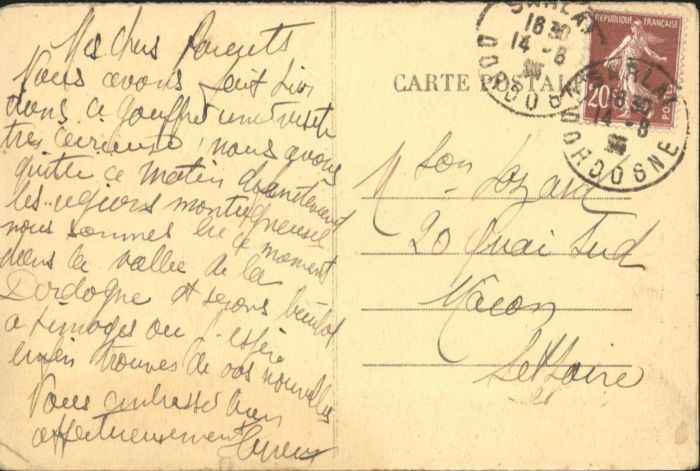 Mes chers Parents
Nous avons fait hier
dans ce gouffre une visite
très curieuse, nous avons
quitté ce matin
les régions montagneuses
nous sommes en ce moment
dans la vallée de la
Dordogne et serons bientôt
a Limoges ou j'espère
enfin trouver de vos nouvelles
Vous embrasse bien
affectueusement
CARTE POSTALE
RÉPUBLIQUE FRANÇAISE
20
POSTES
SARLAT
18 30
14 - 8
DORDOGNE
SARLAT
18 30
14 - 8
DORDOGNE
20 Quai Sud
Macon
S et Loire